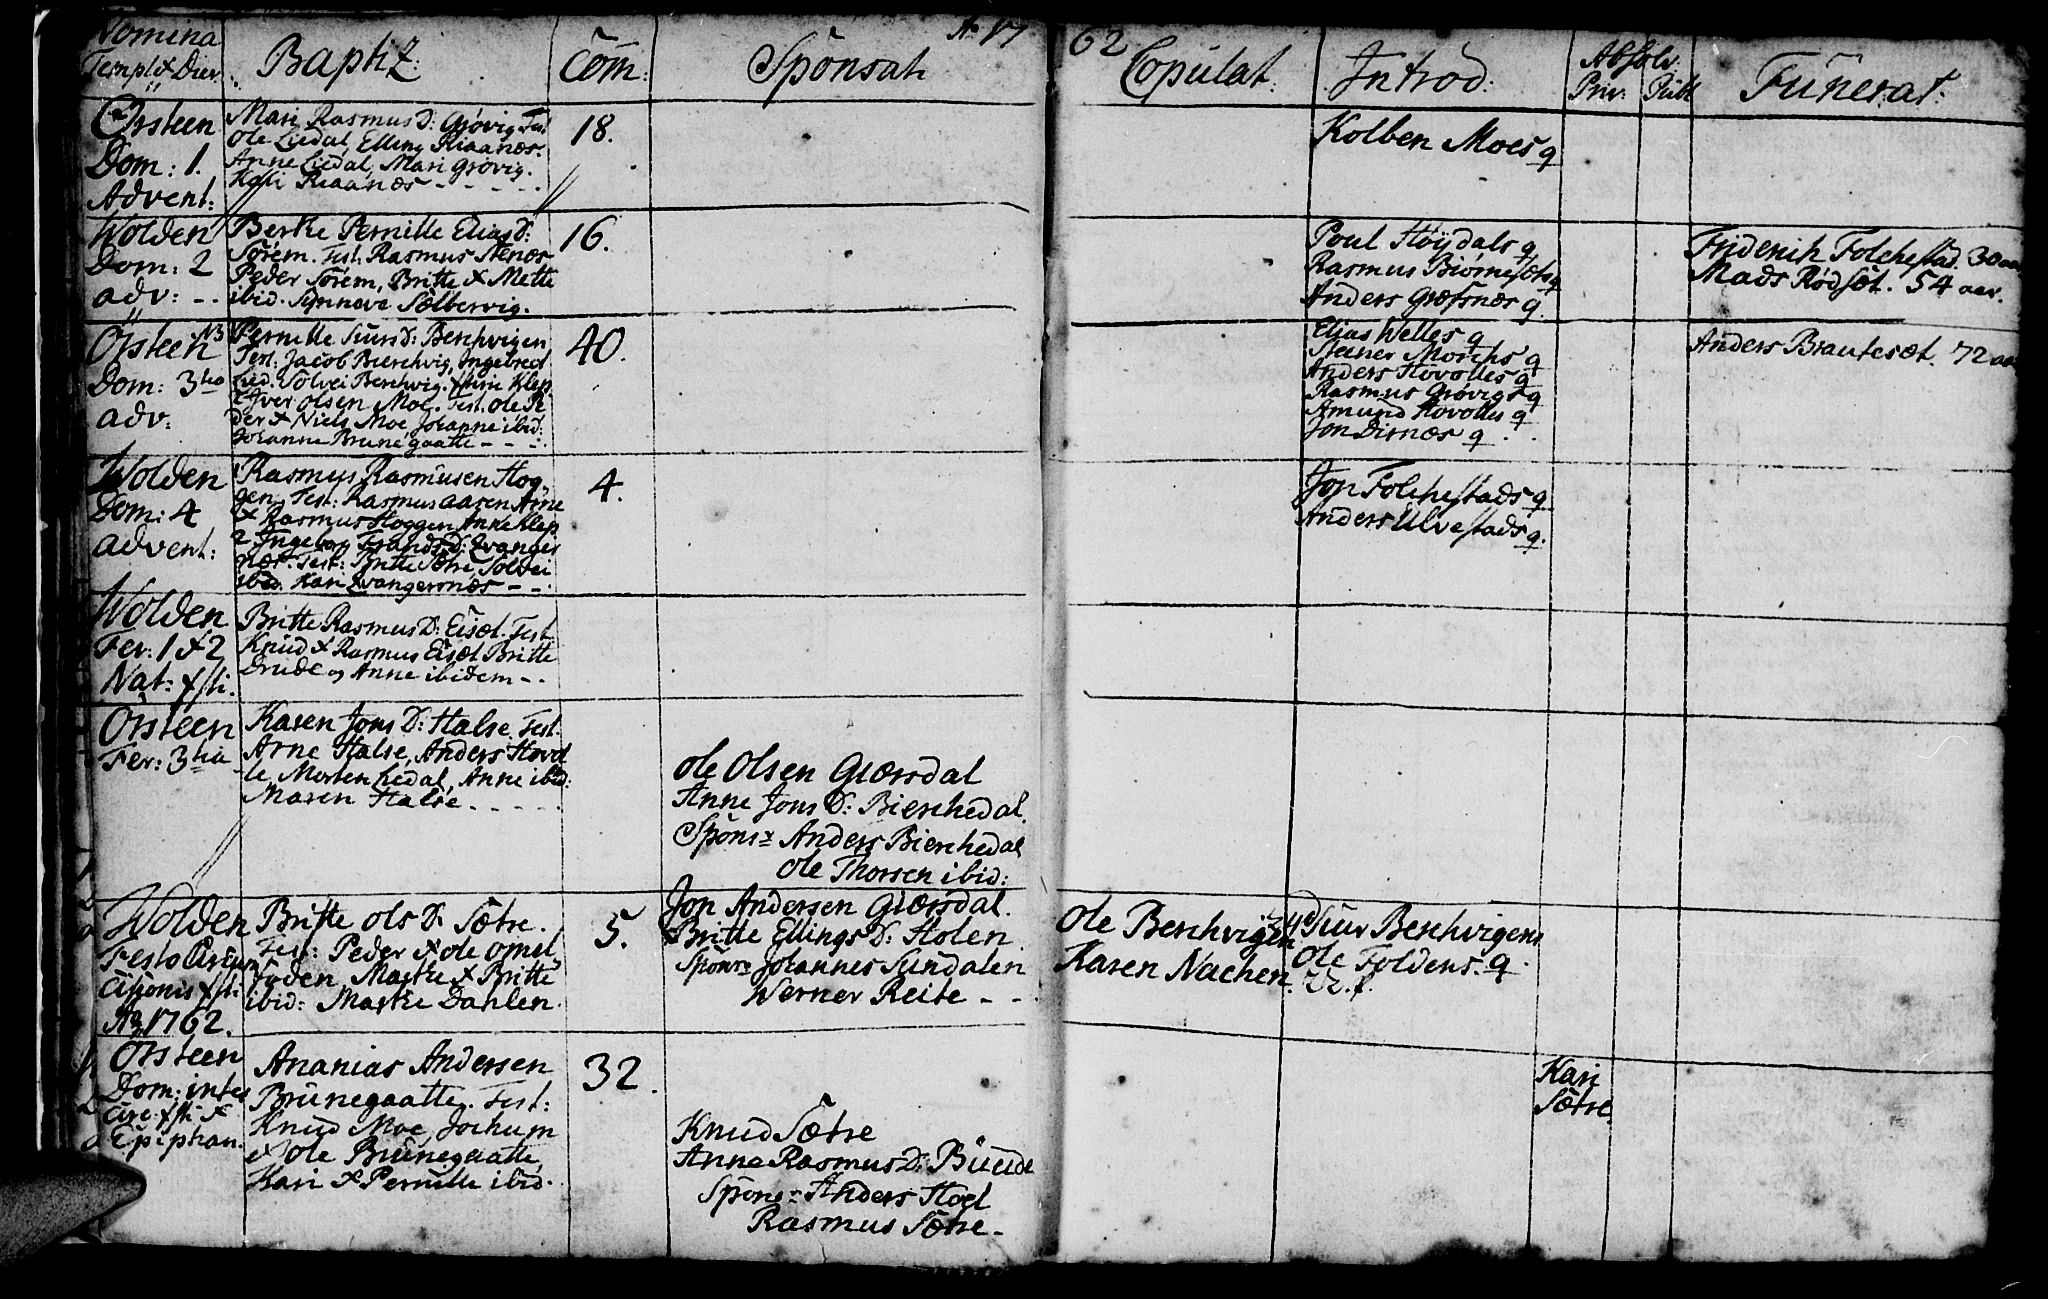 Nomina
Templ & Dier.
Baptiz:
Com:
Sponsat
Ao 17
62
Copulat:
Introd:
Absolv:
Priv: Publ
Funerat:
Orsteen
Dom: 1.
Advent:
Mari Rasmus D: Grøvig Test
Ole Liedal, Elling Riaanæs.
Anne Liedal, Mari Grøvig.
Kari Riaanæs - - - - -
18.
Kolben Moes q
Wolden
Dom: 2
adv: - -
Berte Pernille Elias D:
Sørem. Test. Rasmus Stenæs
Peder Sørem, Britte & Mette
ibid. Synneve Sælbervig.
16.
Poul Høydals q
Rasmus Biørnesæts q
Anders Græfsnæs q.
Friderich Folchestad. 30 aar,
Mads Rødsæt. 54 aar.
Orsteen N3
Dom: 3tia
adv:
Pernille Siurs D: Berchvigen
Test. Jacob Bierchvig, Ingebrect
Lied. Solvei Berchvig. Klep
Iver Olsen Moe. Test. Ole Pe
der & Niels Moe, Johanne ibid:
Johanne Brunegaatte - - -
40.
Elias Welles q
Steener Morchs q
Anders Hovolles q
Rasmus Grøvigs q
Amund Hovolles q
Jon Dirnæs q.
Anders Brautesæt. 72 aar
Wolden
Dom: 4
advent:
Rasmus Rasmusen Hog,
gen, Test: Rasmus Aasen Arne
& Rasmus Hoggen, Anne Klep
2 Ingebor Frands D: Qvanger
næs. Test: Britte Sætre, Solvei
ibid. Kari Qvangersnæs - -
4.
Jon Folchestads q
Anders Ulvestads q.
Wolden
Fer: 1 & 2
Nat: Xsti.
Britte Rasmus D: Eisæt. Test
Knud & Rasmus Eisæt Britte
Drude og Anne ibidem - .
Orsteen
Fer: 3tia
Karen Jons D: Halse. Test.
Arne Halse, Anders Hovd
le, Morten Liedal, Anne ibid:
Maren Halse. - - - -
Ole Olsen Giærsdal
Anne Jons D: Bierchedal.
Spons: Anders Bierchedal
Ole Thorsen ibid:
Wolden
Festo Circum
cisionis Xsti
Ao 1762.
Britte Ols D: Sætre.
Test: Peder & Ole Omel,
foden. Marte & Britte
ibid: Marte Dahlen.
5.
Jon Andersen Giærsdal.
Britte Ellings D: Holen.
Spons: Johannes Sundalen
Werner Reite - -
Ole Berchvigen
Karen Nachen.
Siur Berchvigens
Ole Foldens. q.
Orsteen
Dom: inter
Circ: Xsti &
Epiphan.
Ananias Andersen
Brunegaatte. Test:
Knud Moe, Jochum
& Ole Brunegaatte,
Kari & Pernille ibid.
32.
Knud Sætre
Anne Rasmus D: Bunde
Spons: Anders Hoel
Rasmus Sætre -
Kari
Sætre